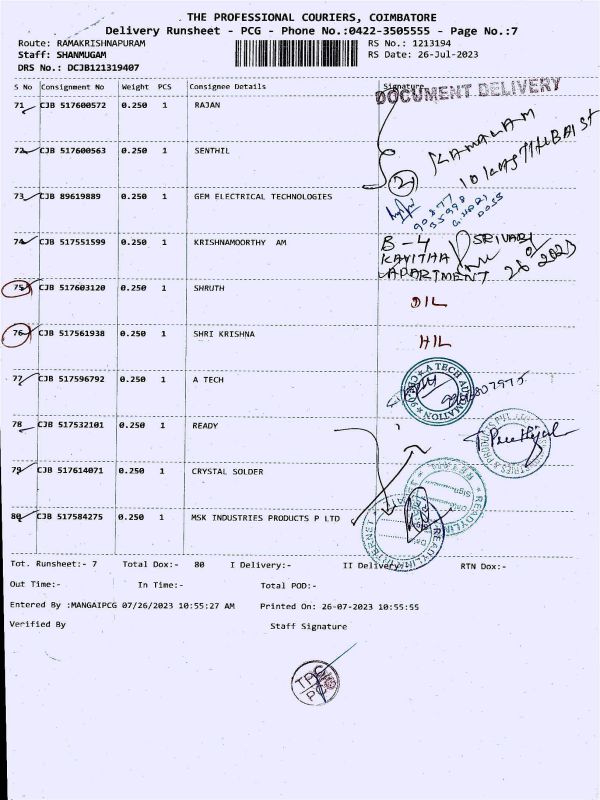 THE PROFESSIONAL COURIERS, COIMBATORE
Delivery Runsheet - PCG - Phone No.:0422-3505555 - Page No.:7
Route: RAMAKRISHNAPURAM RS No.: 1213194
Staff: SHANMUGAM RS Date: 26-Jul-2023
DRS No.: DCJB121319407
S No Consignment No Weight PCS Consignee Details Signature
DOCUMENT DELIVERY
71 CJB 517600572 0.250 1 RAJAN
KAMALAM
72 CJB 517600563 0.250 1 SENTHIL
2
73 CJB 89619889 0.250 1 GEM ELECTRICAL TECHNOLOGIES
74 CJB 517551599 0.250 1 KRISHNAMOORTHY AM
B-4 SRIVARI
KAVITHA
APARTMENT 2023
75 CJB 517603120 0.250 1 SHRUTH
DIL
76 CJB 517561938 0.250 1 SHRI KRISHNA
HIL
77 CJB 517596792 0.250 1 A TECH
A TECH AUTOMATION
78 CJB 517532101 0.250 1 READY
79 CJB 517614071 0.250 1 CRYSTAL SOLDER
80 CJB 517584275 0.250 1 MSK INDUSTRIES PRODUCTS P LTD
Tot. Runsheet:- 7 Total Dox:- 80 I Delivery:- II Delivery:- RTN Dox:-
Out Time:- In Time:- Total POD:-
Entered By :MANGAIPCG 07/26/2023 10:55:27 AM Printed On: 26-07-2023 10:55:55
Verified By Staff Signature
TPC